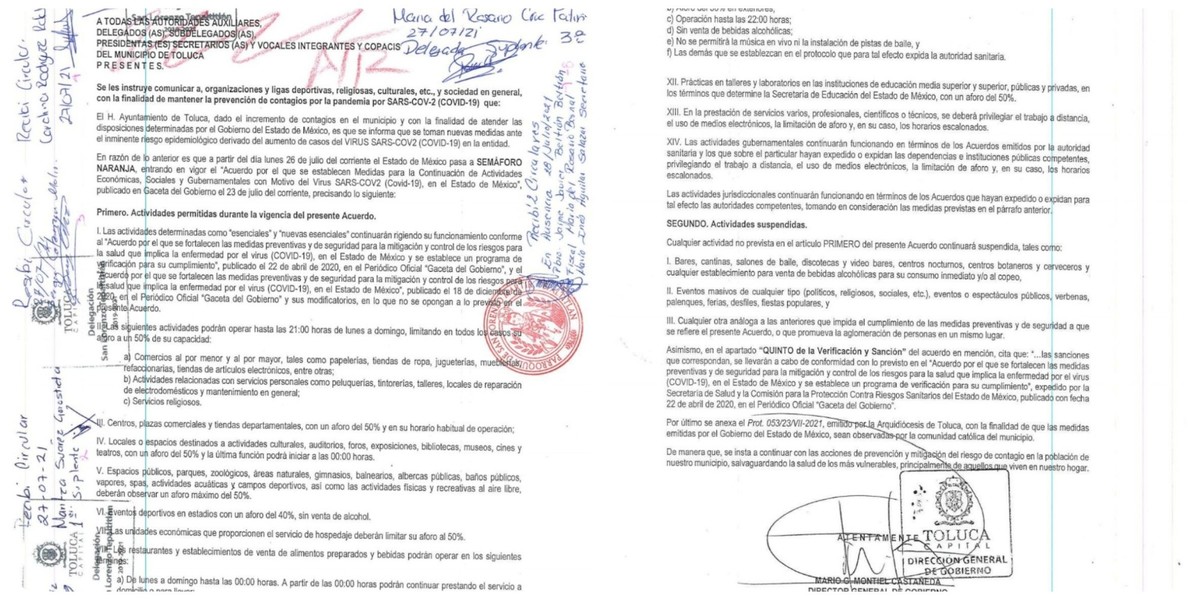 A TODAS LAS AUTORIDADES AUXILIARES,
DELEGADOS (AS), SUBDELEGADOS (AS),
PRESIDENTAS (ES) SECRETARIOS (AS) Y VOCALES INTEGRANTES Y COPACIS
DEL MUNICIPIO DE TOLUCA
P R E S E N T E S .
Se les instruye comunicar a, organizaciones y ligas deportivas, religiosas, culturales, etc., y sociedad en general,
con la finalidad de mantener la prevención de contagios por la pandemia por SARS-COV-2 (COVID-19) que:
El H. Ayuntamiento de Toluca, dado el incremento de contagios en el municipio y con la finalidad de atender las
disposiciones determinadas por el Gobierno del Estado de México, es que se informa que se toman nuevas medidas ante
el inminente riesgo epidemiológico derivado del aumento de casos del VIRUS SARS-COV2 (COVID-19) en la entidad.
En razón de lo anterior es que a partir del día lunes 26 de julio del corriente el Estado de México pasa a SEMÁFORO
NARANJA, entrando en vigor el "Acuerdo por el que se establecen Medidas para la Continuación de Actividades
Económicas, Sociales y Gubernamentales con Motivo del Virus SARS-COV2 (Covid-19), en el Estado de México",
publicado en Gaceta del Gobierno el 23 de julio del corriente, precisando lo siguiente:
Primero. Actividades permitidas durante la vigencia del presente Acuerdo.
I. Las actividades determinadas como "esenciales" y "nuevas esenciales" continuarán rigiendo su funcionamiento conforme
al "Acuerdo por el que se fortalecen las medidas preventivas y de seguridad para la mitigación y control de los riesgos para
la salud que implica la enfermedad por el virus (COVID-19), en el Estado de México y se establece un programa de
verificación para su cumplimiento", publicado el 22 de abril de 2020, en el Periódico Oficial "Gaceta del Gobierno", y el
"Acuerdo por el que se fortalecen las medidas preventivas y de seguridad para la mitigación y control de los riesgos para
la salud que implica la enfermedad por el virus (COVID-19), en el Estado de México", publicado el 18 de diciembre de
2020, en el Periódico Oficial "Gaceta del Gobierno" y sus modificatorios, en lo que no se opongan a lo previsto en el
presente Acuerdo.
II. Las siguientes actividades podrán operar hasta las 21:00 horas de lunes a domingo, limitando en todos los casos su
aforo a un 50% de su capacidad:
a) Comercios al por menor y al por mayor, tales como papelerías, tiendas de ropa, jugueterías, mueblerías,
refaccionarias, tiendas de artículos electrónicos, entre otras;
b) Actividades relacionadas con servicios personales como peluquerías, tintorerías, talleres, locales de reparación
de electrodomésticos y mantenimiento en general;
c) Servicios religiosos.
III. Centros, plazas comerciales y tiendas departamentales, con un aforo del 50% y en su horario habitual de operación;
IV. Locales o espacios destinados a actividades culturales, auditorios, foros, exposiciones, bibliotecas, museos, cines y
teatros, con un aforo del 50% y la última función podrá iniciar a las 00:00 horas.
V. Espacios públicos, parques, zoológicos, áreas naturales, gimnasios, balnearios, albercas públicas, baños públicos,
vapores, spas, actividades acuáticas y campos deportivos, así como las actividades físicas y recreativas al aire libre,
deberán observar un aforo máximo del 50%.
VI. Eventos deportivos en estadios con un aforo del 40%, sin venta de alcohol.
VII. Las unidades económicas que proporcionen el servicio de hospedaje deberán limitar su aforo al 50%.
VIII. Los restaurantes y establecimientos de venta de alimentos preparados y bebidas podrán operar en los siguientes
términos:
a) De lunes a domingo hasta las 00:00 horas. A partir de las 00:00 horas podrán continuar prestando el servicio a
domicilio o para llevar
Maria del Rosario
27/07/21
Delegada Suplente
Recibi Circular
27-07-21
1er Suplente
Recibi 2 Circulares
TOLUCA
CAPITAL
Delegación
San Lorenzo Tepaltitlán
c) Operación hasta las 22:00 horas;
d) Sin venta de bebidas alcohólicas;
e) No se permitirá la música en vivo ni la instalación de pistas de baile, y
f) Las demás que se establezcan en el protocolo que para tal efecto expida la autoridad sanitaria.
XII. Prácticas en talleres y laboratorios en las instituciones de educación media superior y superior, públicas y privadas, en
los términos que determine la Secretaría de Educación del Estado de México, con un aforo del 50%.
XIII. En la prestación de servicios varios, profesionales, científicos o técnicos, se deberá privilegiar el trabajo a distancia,
el uso de medios electrónicos, la limitación de aforo y, en su caso, los horarios escalonados.
XIV. Las actividades gubernamentales continuarán funcionando en términos de los Acuerdos emitidos por la autoridad
sanitaria y los que sobre el particular hayan expedido o expidan las dependencias o instituciones públicas competentes,
privilegiando el trabajo a distancia, el uso de medios electrónicos, la limitación de aforo y, en su caso, los horarios
escalonados.
Las actividades jurisdiccionales continuarán funcionando en términos de los Acuerdos que hayan expedido o expidan para
tal efecto las autoridades competentes, tomando en consideración las medidas previstas en el párrafo anterior.
SEGUNDO. Actividades suspendidas.
Cualquier actividad no prevista en el artículo PRIMERO del presente Acuerdo continuará suspendida, tales como:
I. Bares, cantinas, salones de baile, discotecas y video bares, centros nocturnos, centros botaneros y cerveceros y
cualquier establecimiento para venta de bebidas alcohólicas para su consumo inmediato y/o al copeo,
II. Eventos masivos de cualquier tipo (políticos, religiosos, sociales, etc.), eventos o espectáculos públicos, verbenas,
palenques, ferias, desfiles, fiestas populares, y
III. Cualquier otra análoga a las anteriores que impida el cumplimiento de las medidas preventivas y de seguridad a que
se refiere el presente Acuerdo, o que promueva la aglomeración de personas en un mismo lugar.
Asimismo, en el apartado "QUINTO de la Verificación y Sanción" del acuerdo en mención, cita que: "...las sanciones
que correspondan, se llevarán a cabo de conformidad con lo previsto en el "Acuerdo por el que se fortalecen las medidas
preventivas y de seguridad para la mitigación y control de los riesgos para la salud que implica la enfermedad por el virus
(COVID-19), en el Estado de México y se establece un programa de verificación para su cumplimiento", expedido por la
Secretaría de Salud y la Comisión para la Protección Contra Riesgos Sanitarios del Estado de México, publicado con fecha
22 de abril de 2020, en el Periódico Oficial "Gaceta del Gobierno".
Por último se anexa el Prot. 053/23/VII-2021, emitido por la Arquidiócesis de Toluca, con la finalidad de que las medidas
emitidas por el Gobierno del Estado de México, sean observadas por la comunidad católica del municipio.
De manera que, se insta a continuar con las acciones de prevención y mitigación del riesgo de contagio en la población de
nuestro municipio, salvaguardando la salud de los más vulnerables, principalmente de aquellos que viven en nuestro hogar.
ATENTAMENTE
TOLUCA
CAPITAL
DIRECCIÓN GENERAL
DE GOBIERNO
MARIO G. MONTIEL CASTAÑEDA
DIRECTOR GENERAL DE GOBIERNO